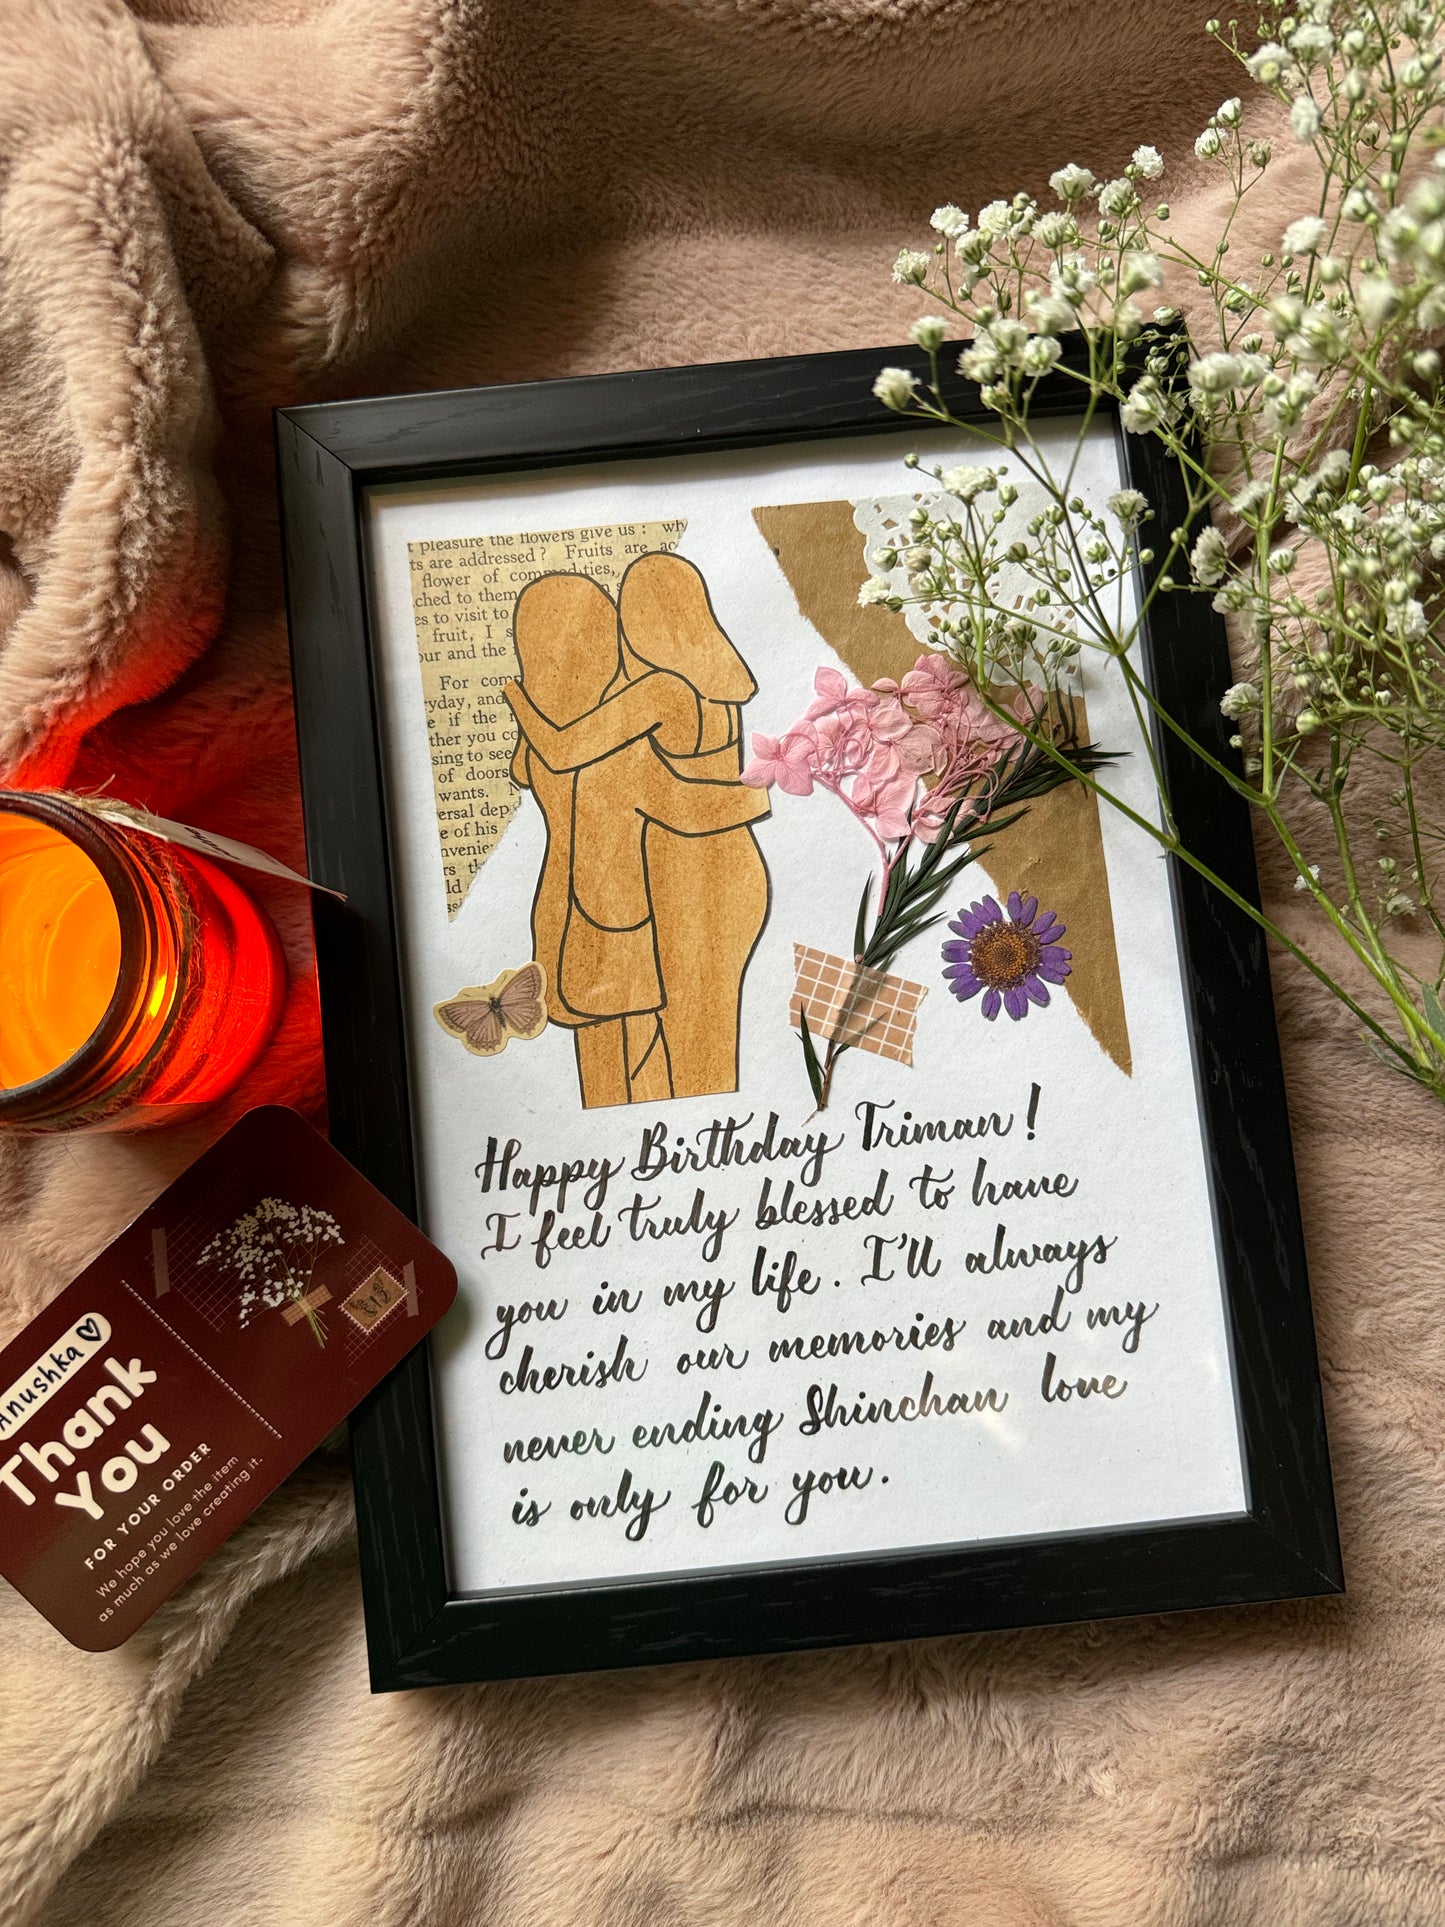 t pleasure the flowers give us : wh
ts are addressed? Fruits are
flower of commodities,
ched to them
es to visit to
fruit, I
our and the
For
yday, and
e if the
ther you
sing to see
of doors
wants.
ersal dep
e of his
nvenie
Happy Birthday Triman!
I feel truly blessed to have
you in my life. I'll always
cherish our memories and my
never ending Shinchan love
is only for you.
Anushka
Thank
You
FOR YOUR ORDER
We hope you love the item
as much as we love creating it.